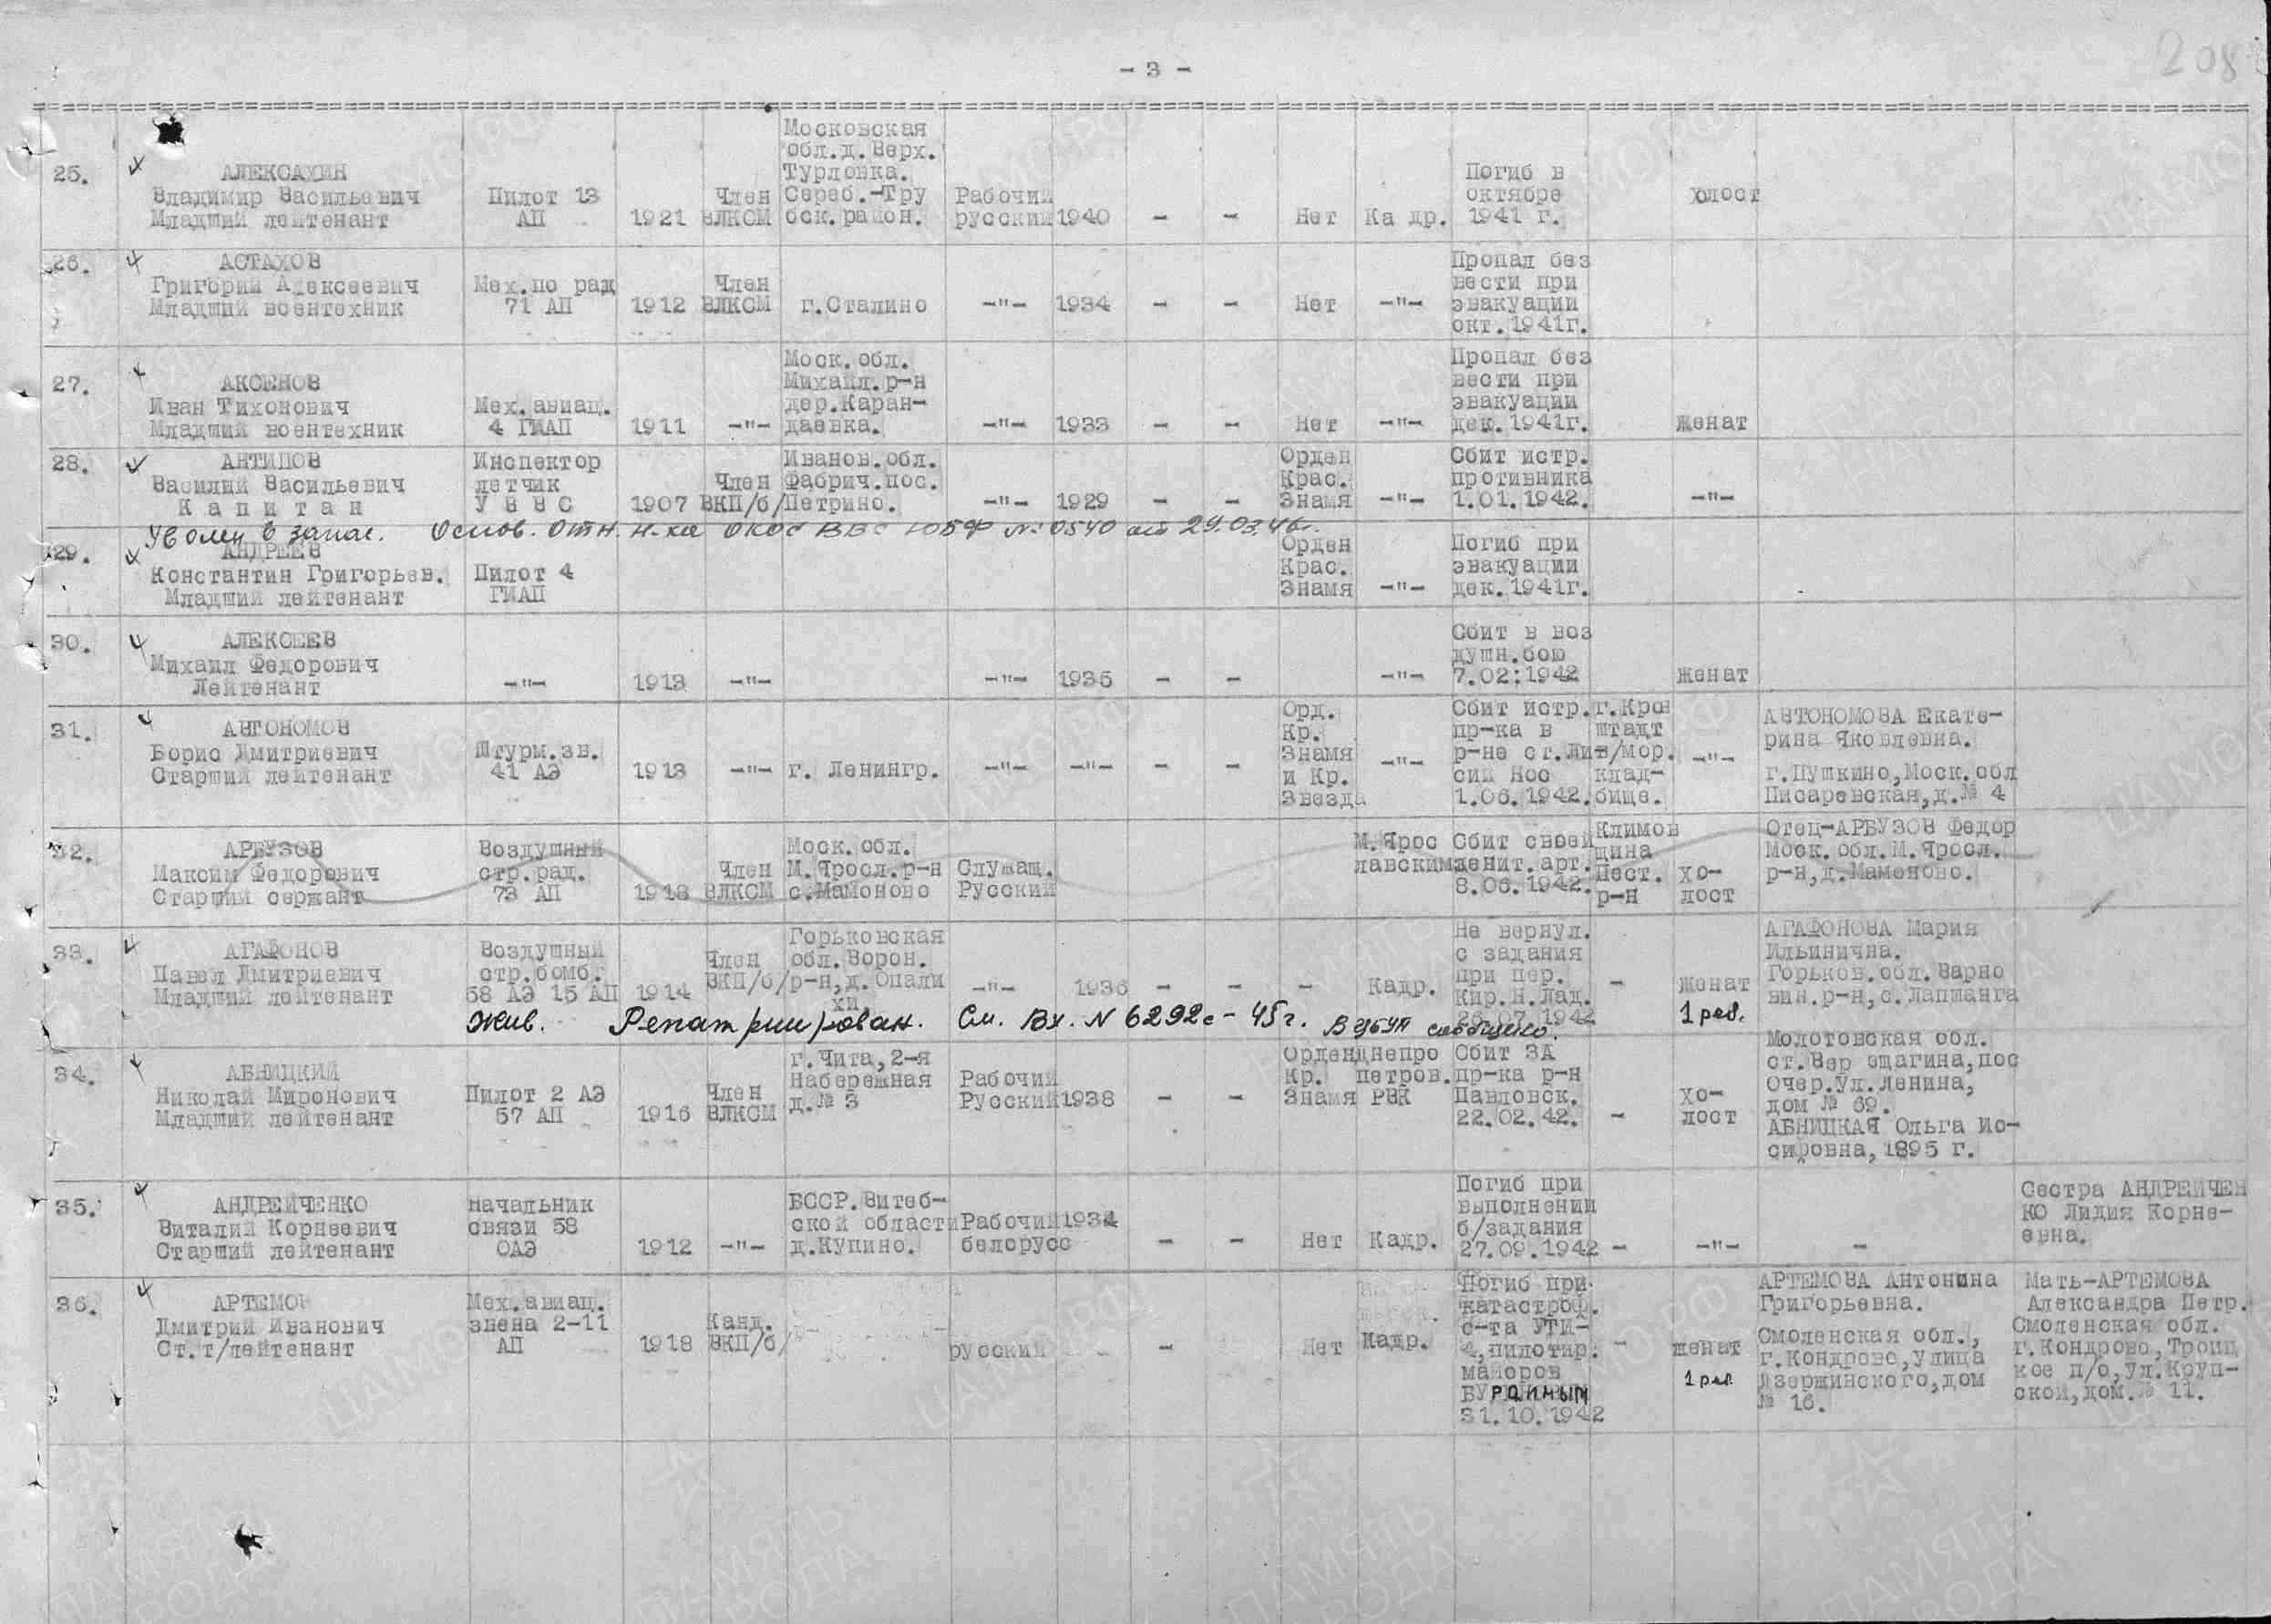 - 3 -
208
25.
АЛЕКСАХИН
Владимир Васильевич
Младший лейтенант
Пилот 13
АП
1921
Член
ВЛКСМ
Московская
обл.д.Верх.
Турловка.
Сереб.-Тру
бск.район.
Рабочий
русский
1940
-
-
Нет
Ка др.
Погиб в
октябре
1941 г.
холост
26.
АСТАХОВ
Григорий Алексеевич
Младший воентехник
Мех.по рад
71 АП
1912
Член
ВЛКСМ
г.Сталино
-"-
1934
-
-
Нет
-"-
Пропал без
вести при
эвакуации
окт.1941г.
27.
АКСЕНОВ
Иван Тихонович
Младший воентехник
Мех.авиац.
4 ГИАП
1911
-"-
Моск.обл.
Михайл.р-н
дер.Каран-
даевка.
-"-
1933
-
-
Нет
-"-
Пропал без
вести при
эвакуации
дек.1941г.
женат
28.
АНТИПОВ
Василий Васильевич
К а п и т а н
Инспектор
летчик
У В В С
1907
Член
ВКП/б/
Иванов.обл.
Фабрич.пос.
Петрино.
-"-
1929
-
-
Орден
Крас.
Знамя
-"-
Сбит истр.
противника
1.01.1942.
-"-
Уволен в запас. Основ. Отн. н-ка ОКОС ВВС ЮБФ № 0540 от 29.03.46г.
29.
АНДРЕЕВ
Константин Григорьев.
Младший лейтенант
Пилот 4
ГИАП
Орден
Крас.
Знамя
-"-
Погиб при
эвакуации
дек.1941г.
30.
АЛЕКСЕЕВ
Михаил Федорович
Лейтенант
-"-
1913
-"-
-"-
1935
-
-
-"-
Сбит в воз
душн.бою
7.02:1942
женат
31.
АВТОНОМОВ
Борис Дмитриевич
Старший лейтенант
Штурм.зв.
41 АЭ
1913
-"-
г. Ленингр.
-"-
-"-
-
-
Орд.
Кр.
Знамя
и Кр.
Звезда
-"-
Сбит истр.
пр-ка в
р-не ст.Ли
сий Нос
1.06.1942.
г.Крон
штадт
в/мор.
клад-
бище.
-"-
АВТОНОМОВА Екате-
рина Яковлевна.
г.Пушкино,Моск.обл
Писаревская,д.№ 4
32.
АРБУЗОВ
Максим Федорович
Старший сержант
Воздушный
стр.рад.
73 АП
1918
Член
ВЛКСМ
Моск.обл.
М.Яросл.р-н
с.Мамоново
Служащ.
Русский
М.Ярос
лавским
Сбит своей
зенит.арт.
8.06.1942.
Климов
щина
Пест.
р-н
хо-
лост
Отец-АРБУЗОВ Федор
Моск.обл.М.Яросл.
р-н,д.Мамоново.
33.
АГАФОНОВ
Павел Дмитриевич
Младший лейтенант
Воздушный
стр.бомб.
58 АЭ 15 АП
1914
Член
ВКП/б/
Горьковская
обл.Ворон.
р-н,д.Опали
хи
-"-
1936
-
-
-
Кадр.
Не вернул.
с задания
при пер.
Кир.Н.Лад.
26.07.1942
-
женат
1 реб.
АГАФОНОВА Мария
Ильинична.
Горьков.обл.Варно
вин.р-н,с.Лапшанга
Жив. Репатриирован. См. Вх. N 6292с - 45г. В УБУП сообщено.
34.
АБНИЦКИЙ
Николай Миронович
Младший лейтенант
Пилот 2 АЭ
57 АП
1916
Член
ВЛКСМ
г.Чита,2-я
Набережная
д.№ 3
Рабочий
Русский
1938
-
-
Орден
Кр.
Знамя
днепро
петров.
РВК
Сбит ЗА
пр-ка р-н
Павловск.
22.02.42.
-
хо-
лост
Молотовская обл.
ст.Вер ещагина,пос
Очер.Ул.Ленина,
дом № 69.
АБНИЦКАЯ Ольга Ио-
сировна,1895 г.
35.
АНДРЕЙЧЕНКО
Виталий Корнеевич
Старший лейтенант
начальник
связи 58
ОАЭ
1912
-"-
БССР.Витеб-
ской области
д.Купино.
Рабочий
белорусс
1934
-
-
Нет
Кадр.
Погиб при
выполнении
б/задания
27.09.1942
-
-"-
-
Сестра АНДРЕЙЧЕН
КО Лидия Корне-
евна.
36.
АРТЕМОВ
Дмитрий Иванович
Ст.т/лейтенант
Мех.авиац.
звена 2-11
АП
1918
Канд.
ВКП/б/
русский
-
Нет
Кадр.
Погиб при
катастроф.
с-та УТИ-
4,пилотир.
майоров
БУРДИНЫМ
31.10.1942
-
женат
1 реб.
АРТЕМОВА Антонина
Григорьевна.
Смоленская обл.,
г.Кондрово,улица
Дзержинского,дом
№ 16.
Мать-АРТЕМОВА
Александра Петр.
Смоленская обл.
г.Кондрово,Троиц
кое п/о,ул.Круп-
ской,дом.№ 11.